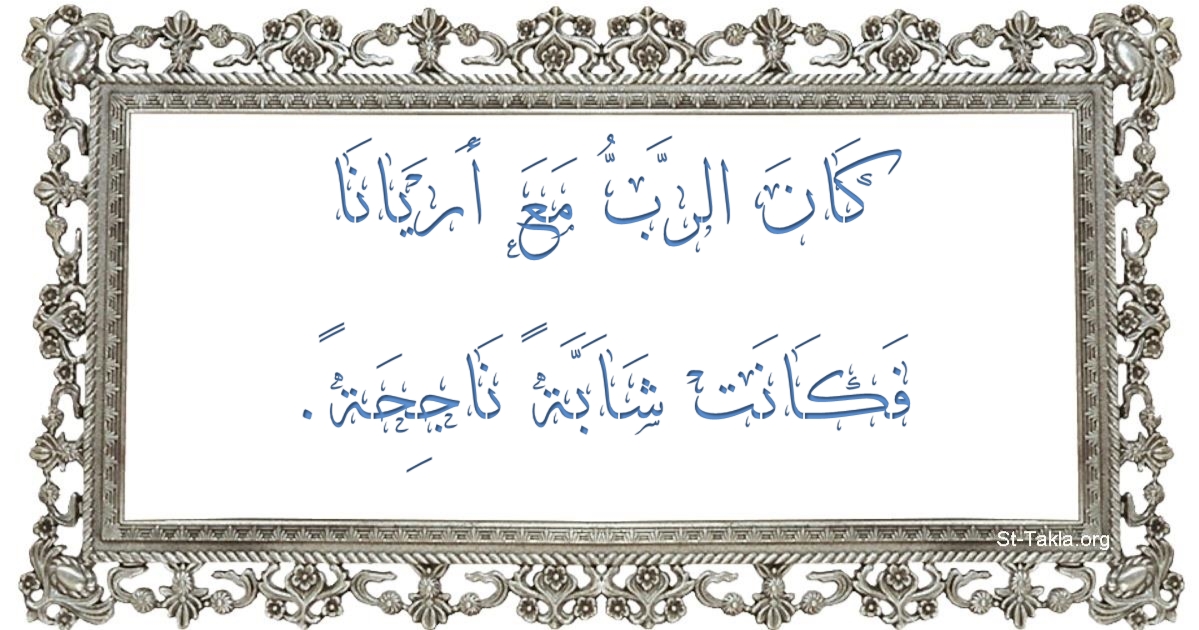 كَانَ الرَّبُّ مَعَ أَرْيَانَا
فَكَانَتْ شَابَّةً نَاجِحَةً.
St-Takla.org